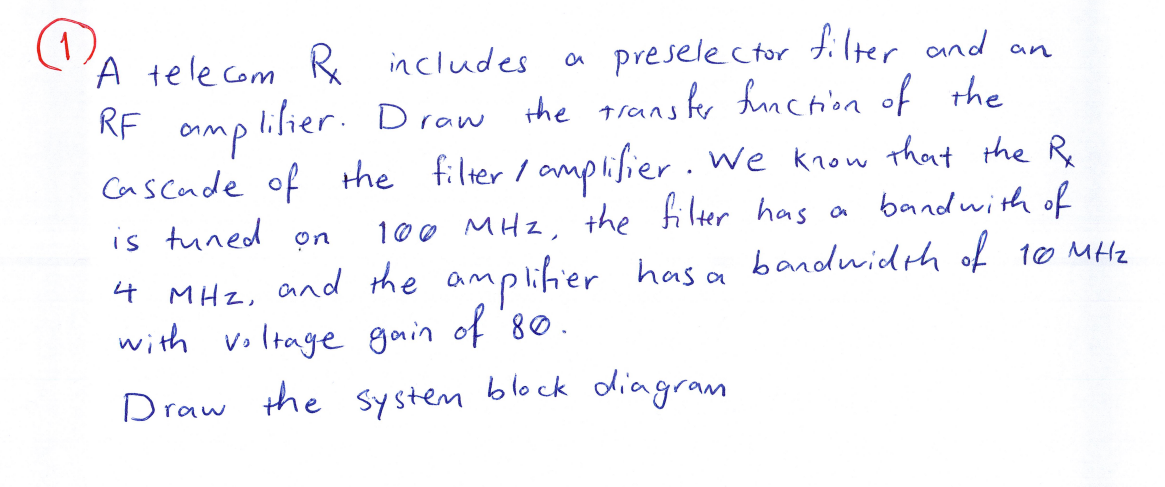 1
A telecom Rx includes a preselector filter and an
RF amplifier. Draw the transfer function of the
cascade of the filter / amplifier. We know that the Rx
is tuned on 100 MHz, the filter has a bandwith of
4 MHz, and the amplifier has a bandwidth of 10 MHz
with voltage gain of 80.
Draw the system block diagram